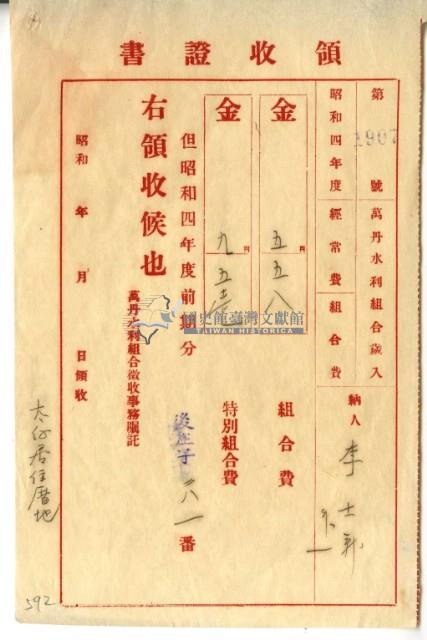 領收證書
第 1907 號 萬丹水利組合歲入
昭和四年度 經常費 組合費
納人 李士
金 五 円 五八
組合費
金 九 円 五
特別組合費
但昭和四年度前期分
後庄子 六一番
右領收候也
萬丹水利組合徵收事務囑託
昭和 年 月 日領收
國史館臺灣文獻館
TAIWAN HISTORICA
居住厝地
592